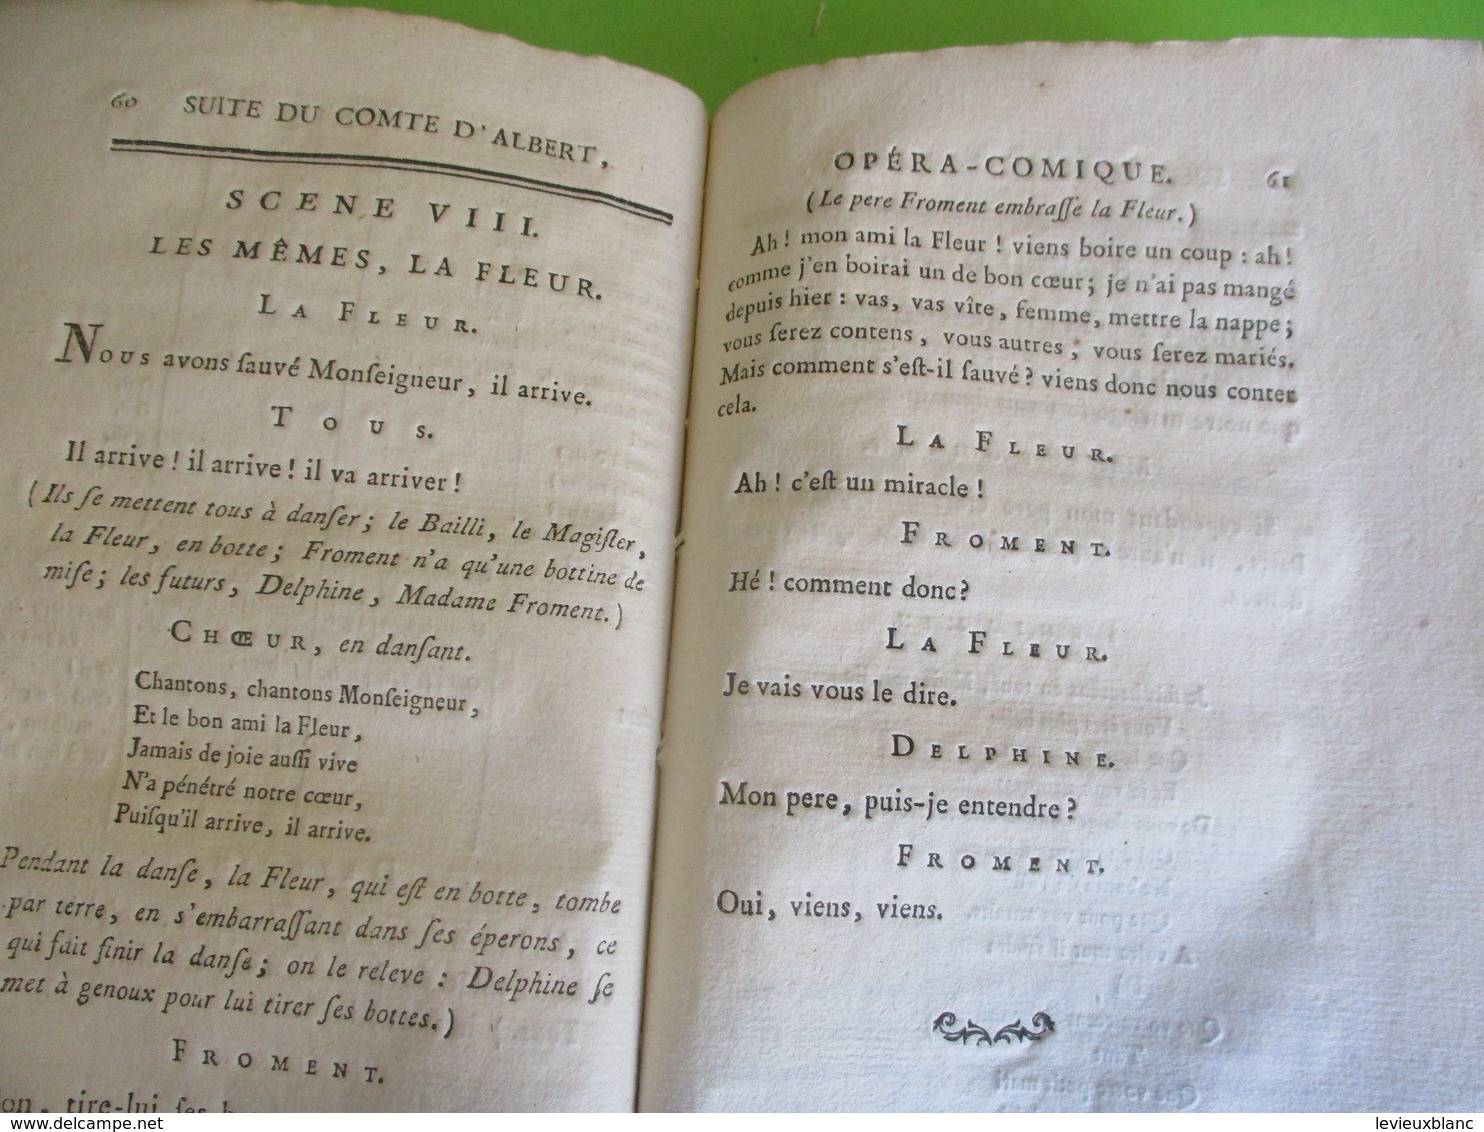 60 SUITE DU COMTE D'ALBERT,
SCENE VIII.
LES MÊMES, LA FLEUR.
LA FLEUR.
Nous avons ſauvé Monſeigneur, il arrive.
Tous.
Il arrive ! il arrive ! il va arriver !
(Ils ſe mettent tous à danſer ; le Bailli, le Magiſter,
la Fleur, en botte ; Froment n'a qu'une bottine de
miſe ; les futurs, Delphine, Madame Froment.)
CHŒUR, en danſant.
Chantons, chantons Monſeigneur,
Et le bon ami la Fleur,
Jamais de joie auſſi vive
N'a pénétré notre cœur,
Puiſqu'il arrive, il arrive.
Pendant la danſe, la Fleur, qui eſt en botte, tombe
par terre, en s'embarraſſant dans ſes éperons, ce
qui fait finir la danſe ; on le releve : Delphine ſe
met à genoux pour lui tirer ſes bottes.)
FROMENT.
on, tire-lui ſes
OPÉRA-COMIQUE. 61
(Le pere Froment embraſſe la Fleur.)
Ah ! mon ami la Fleur ! viens boire un coup : ah !
comme j'en boirai un de bon cœur ; je n'ai pas mangé
depuis hier : vas, vas vîte, femme, mettre la nappe ;
vous ſerez contens, vous autres ; vous ſerez mariés.
Mais comment s'eſt-il ſauvé ? viens donc nous conter
cela.
LA FLEUR.
Ah ! c'eſt un miracle !
FROMENT.
Hé ! comment donc ?
LA FLEUR.
Je vais vous le dire.
DELPHINE.
Mon pere, puis-je entendre ?
FROMENT.
Oui, viens, viens.
Photo non contractuelle
levieuxblanc